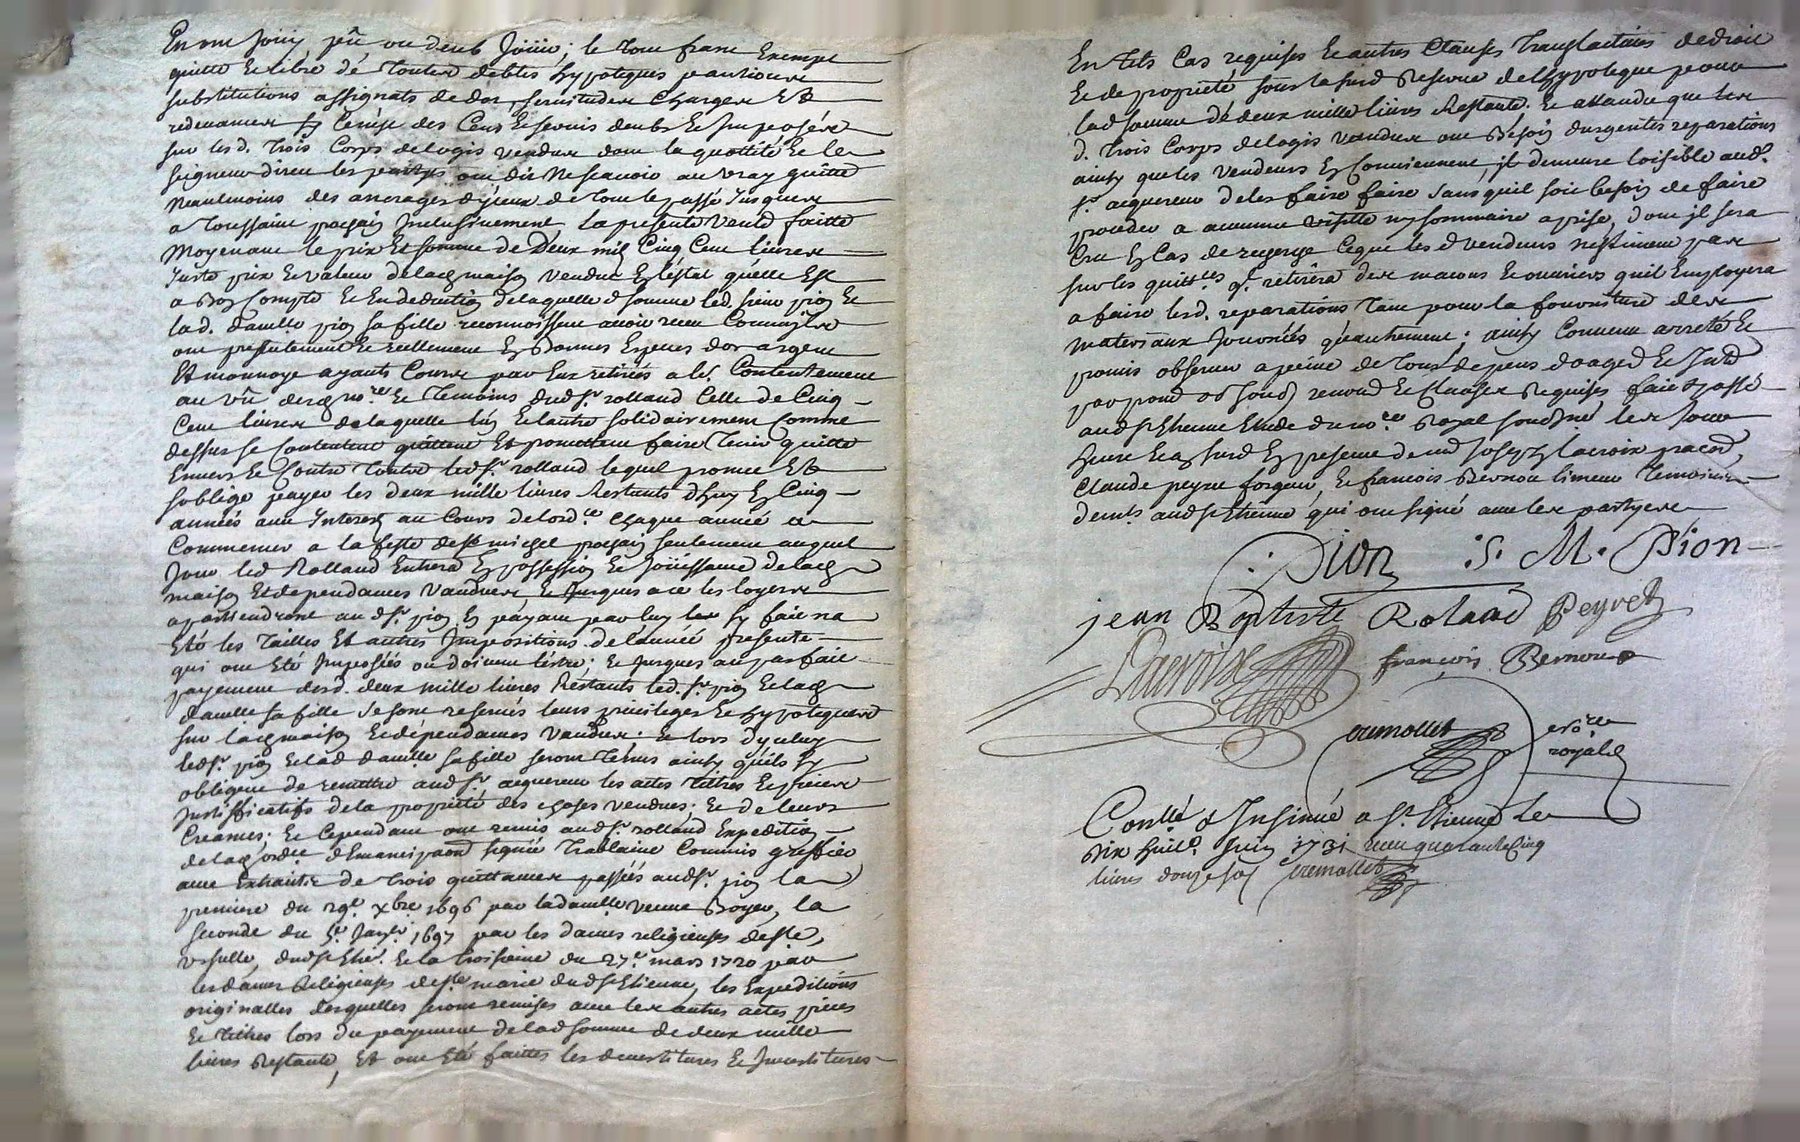 En ont joüy, peu ou deub joüir; le tout franc Exempt
quitte et libre de toutes debtes hypoteques pantions
substitutions assignats de dot, servitudes charges Et
redevances Excepté des Cens et servis deubs et Imposés
sur lesd. trois Corps de logis vendus dont la quottité et le
seigneur direct les partyes ont dit ne scavoir au vray quitte
neantmoins des arrerages d'yceux de tout le passé jusques
a toussaint prochain inclusivement la presente vente faitte
moyenant le prix et somme de Deux mil Cinq Cent livres
juste prix et valeur de lad. maison vendue En l'état qu'elle Est
a bon Compte et En deduction de laquelle d. somme led. sieur pion et
lad. damlle pion sa fille reconnoissent avoir receu Comme
ont presentement et reellement En bonnes Especes d'or argent
Et monnoye ayants Cours par Eux retirés a ld. Contentement
au vû desd. nore. et temoins dud. sr. rolland Celle de Cinq
Cent livres de laquelle l'un et l'autre solidairement comme
dessus se contentent quittent Et promettent faire tenir quitte
Envers et Contre toutes led. sr. rolland lequel promet Et
s'oblige payer les deux mille livres Restants d'huy En Cinq
années avec Interest au Cours de l'ordce. chaque année a
Commencer a la feste de st. michel prochain seulement auquel
jour led Rolland Entrera En possession et joüissance de lad.
maison Et dependances vendues et jusques a ce les loyers
apartiendront aud. sr. pion En payant par luy
Eté les tailles Et autres Impositions de l'année presente
qui ont Eté Imposéés ou doivent l'être; et jusques au parfait
payement desd. deux mille livres Restants led. sr. pion et lad.
damlle sa fille se sont reservés leurs privileges et hypoteques
sur lad. maison et dépendances vendues. Et lors d'yceluy
led. sr. pion et lad damlle sa fille seront tenus ainsy qu'ils s'y
obligent de remettre aud. sr. acquereur les actes tittres et pieces
justifficatifs de la proprieté des choses vendues. et de leurs
Creances; Et Cependant ont remis aud. sr. rolland Expedition
de lad. ordce. d'Emancipaon signée Commis greffier
avec Extraits de trois quittances passées aud. sr. pion la
premiere du 29e. xbre. 1696 par la damlle veuve Boyer, la
seconde du 5e. janvr. 1697 par les dames religieuses de ste.
ursulle, dud. st Etne. Et la troisieme du 27e. mars 1720 par
les dames Religieuses de ste marie dud. st Etienne, les Expeditions
originalles desquelles seront remises avec les autres actes pieces
et titres lors du payement de lad somme de deux mille
livres Restante, Et ont Eté faittes les devestitures et Investitures
En tels Cas requises Et autres Clauses translatives de droit
Et de proprieté sous la susd Reserve de l'hypoteque pour
lad somme de deux mille livres Restante. Et attandu que les
d. trois Corps de logis vendus ont Besoin d'urgentes reparations
ainsy que les vendeurs En Conviennent, il demeure loisible aud.
sr. acquereur de les faire faire sans qu'il soit besoin de faire
proceder a aucune visitte ny sommaire aprise, dont il sera
Cru En Cas de
sur les quittces. qu'il retirera des macons et ouvriers qu'il Employera
a faire lesd. reparations tant pour la fourniture des
materiaux journéés qu'autrement; ainsy Convenu arreté et
promis observer a peine de tous depens domages et Intd
par foud renond et Clauses Requises fait et passé
aud st Etienne Etude du nore. Royal soussigné les jour
heure En presence de me Joseph lacroix praticn,
Claude peyret forgeur, et francois Bernou limeur temoins
demts. aud st Etienne qui ont signé avec les partyes
. Pion : S. M. Pion
jean Baptiste Roland Peyret
Lacroix françois Bernou
cremollet nore
royal
Conllé & Insinué a St. Etienne le
Dix huit. juin 1731 receu quarante Cinq
livres douze sols cremollet